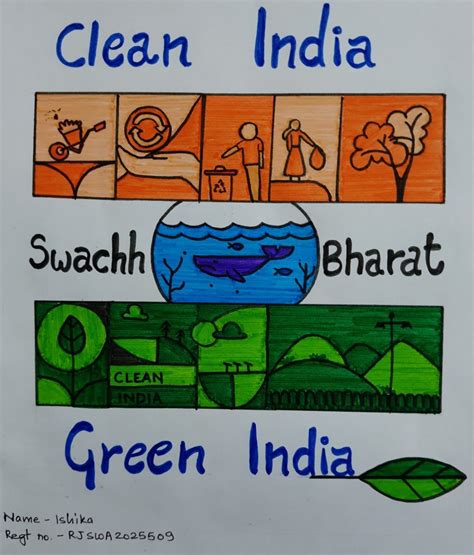 Clean India
Swachh Bharat
CLEAN
INDIA
Green India
Name - Ishika
Regt no. - RJSWA2025509